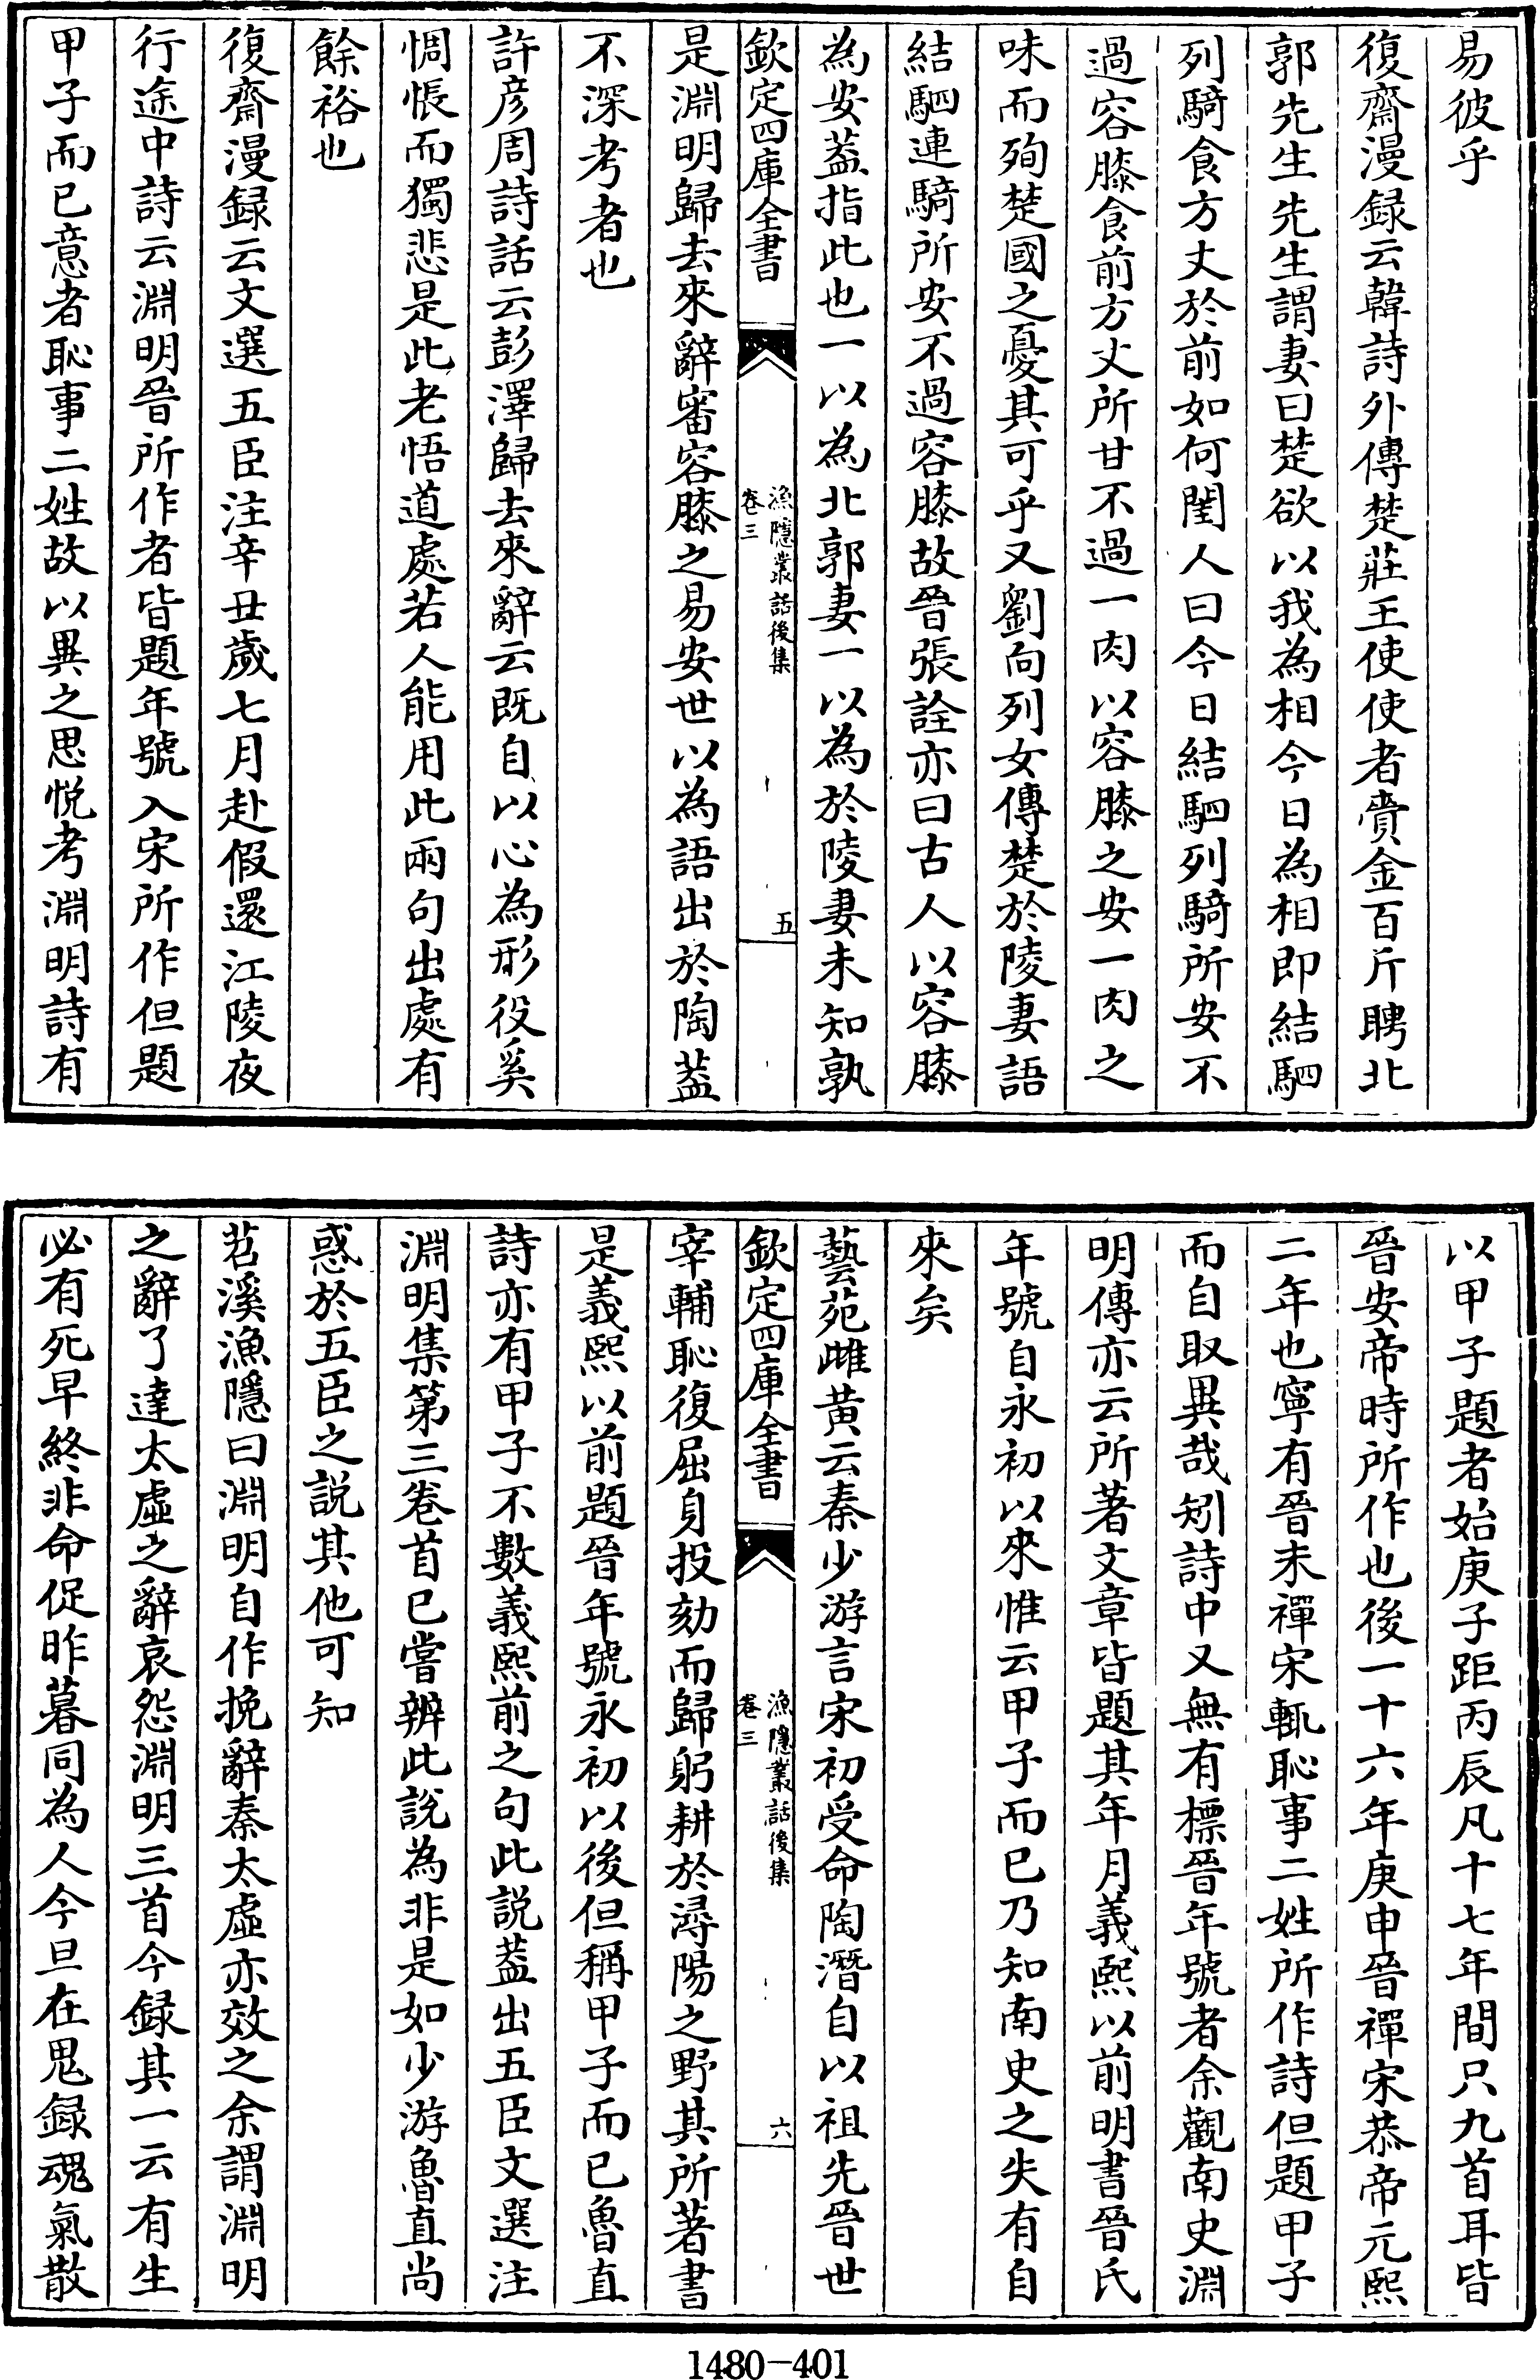 易彼乎
復齋漫録云韓詩外傳楚莊王使使者賫金百斤聘北
郭先生先生謂妻曰楚欲以我為相今日為相即結駟
列騎食方丈於前如何閨人曰今日結駟列騎所安不
過容膝食前方丈所甘不過一肉以容膝之安一肉之
味而殉楚國之憂其可乎又劉向列女傳楚於陵妻語
結駟連騎所安不過容膝故晉張詮亦曰古人以容膝
為安葢指此也一以為北郭妻一以為於陵妻未知孰
欽定四庫全書
漁隱叢話後集
卷三
五
是淵明歸去來辭審容膝之易安世以為語出於陶葢
不深考者也
許彦周詩話云彭澤歸去來辭云既自以心為形役奚
惆悵而獨悲是此老悟道處若人能用此兩句出處有
餘裕也
復齋漫録云文選五臣注辛丑歲七月赴假還江陵夜
行途中詩云淵明晉所作者皆題年號入宋所作但題
甲子而已意者恥事二姓故以異之思悦考淵明詩有
以甲子題者始庚子距丙辰凡十七年間只九首耳皆
晉安帝時所作也後一十六年庚申晉禪宋恭帝元熙
二年也寧有晉未禪宋輒恥事二姓所作詩但題甲子
而自取異哉矧詩中又無有標晉年號者余觀南史淵
明傳亦云所著文章皆題其年月義熙以前明書晉氏
年號自永初以來惟云甲子而已乃知南史之失有自
來矣
藝苑雌黄云秦少游言宋初受命陶潛自以祖先晉世
欽定四庫全書
漁隱叢話後集
卷三
六
宰輔恥復屈身投劾而歸躬耕於潯陽之野其所著書
是義熙以前題晉年號永初以後但稱甲子而已魯直
詩亦有甲子不數義熙前之句此説葢出五臣文選注
淵明集第三卷首已嘗辨此説為非是如少游魯直尚
惑於五臣之説其他可知
苕溪漁隱曰淵明自作挽辭秦太虚亦效之余謂淵明
之辭了達太虚之辭哀怨淵明三首今録其一云有生
必有死早終非命促昨暮同為人今旦在鬼録魂氣散
1480-401